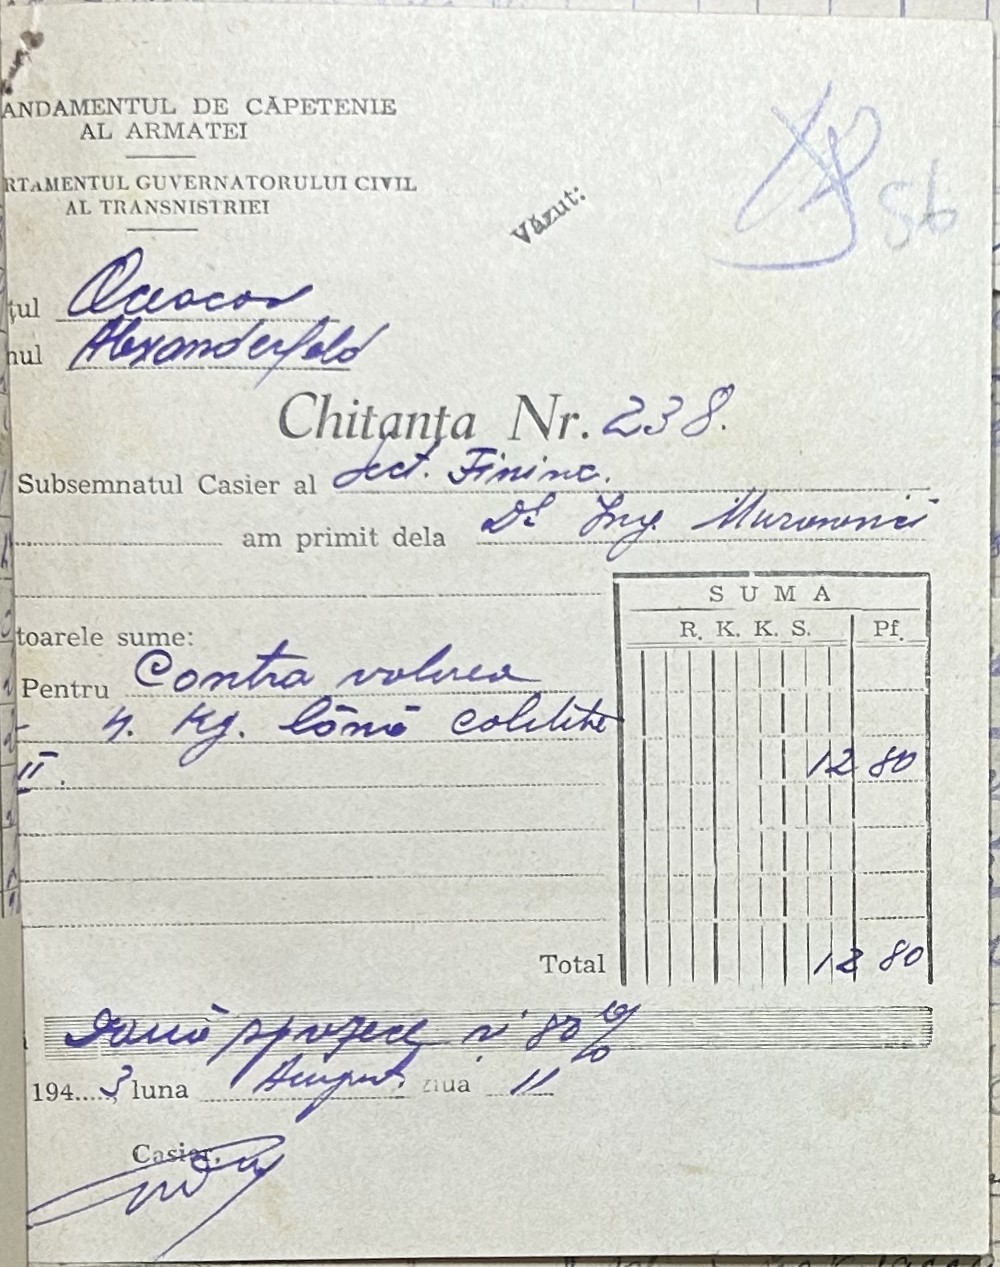 ANDAMENTUL DE CĂPETENIE
AL ARMATEI
RTAMENTUL GUVERNATORULUI CIVIL
AL TRANSNISTRIEI
Văzut:
56
țul Oceacov
nul Alexanderfeld
Chitanța Nr. 238.
Subsemnatul Casier al Sect. Financ.
am primit dela Dl Ing.
toarele sume:
SUMA
R. K. K. S. Pf.
Pentru Contra valorea
4. Kg. lână calitate
II. 12 80
Total 12 80
Două sprezece și 80 %
194...3 luna August. ziua 11
Casier,